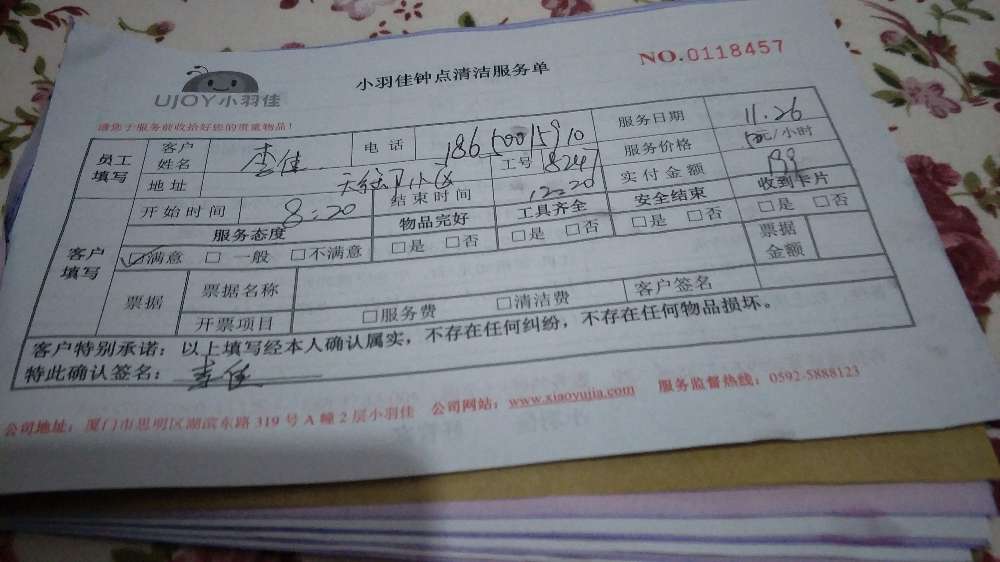 UJOY小羽佳
小羽佳钟点清洁服务单
NO.0118457
请您于服务前收拾好您的贵重物品！
员工填写 客户姓名 李佳 电话 18650015910 服务日期 11.26
地址 小区 工号 8247 服务价格 元/小时
开始时间 8:20 结束时间 12:20 实付金额 199
客户填写 服务态度 物品完好 工具齐全 安全结束 收到卡片
☑满意 □一般 □不满意 □是 □否 □是 □否 □是 □否 □是 □否
票据 票据名称 客户签名 票据金额
开票项目 □服务费 □清洁费
客户特别承诺：以上填写经本人确认属实，不存在任何纠纷，不存在任何物品损坏。
特此确认签名： 李佳
公司地址：厦门市思明区湖滨东路319号A幢2层小羽佳 公司网站：www.xiaoyujia.com 服务监督热线：0592-5888123